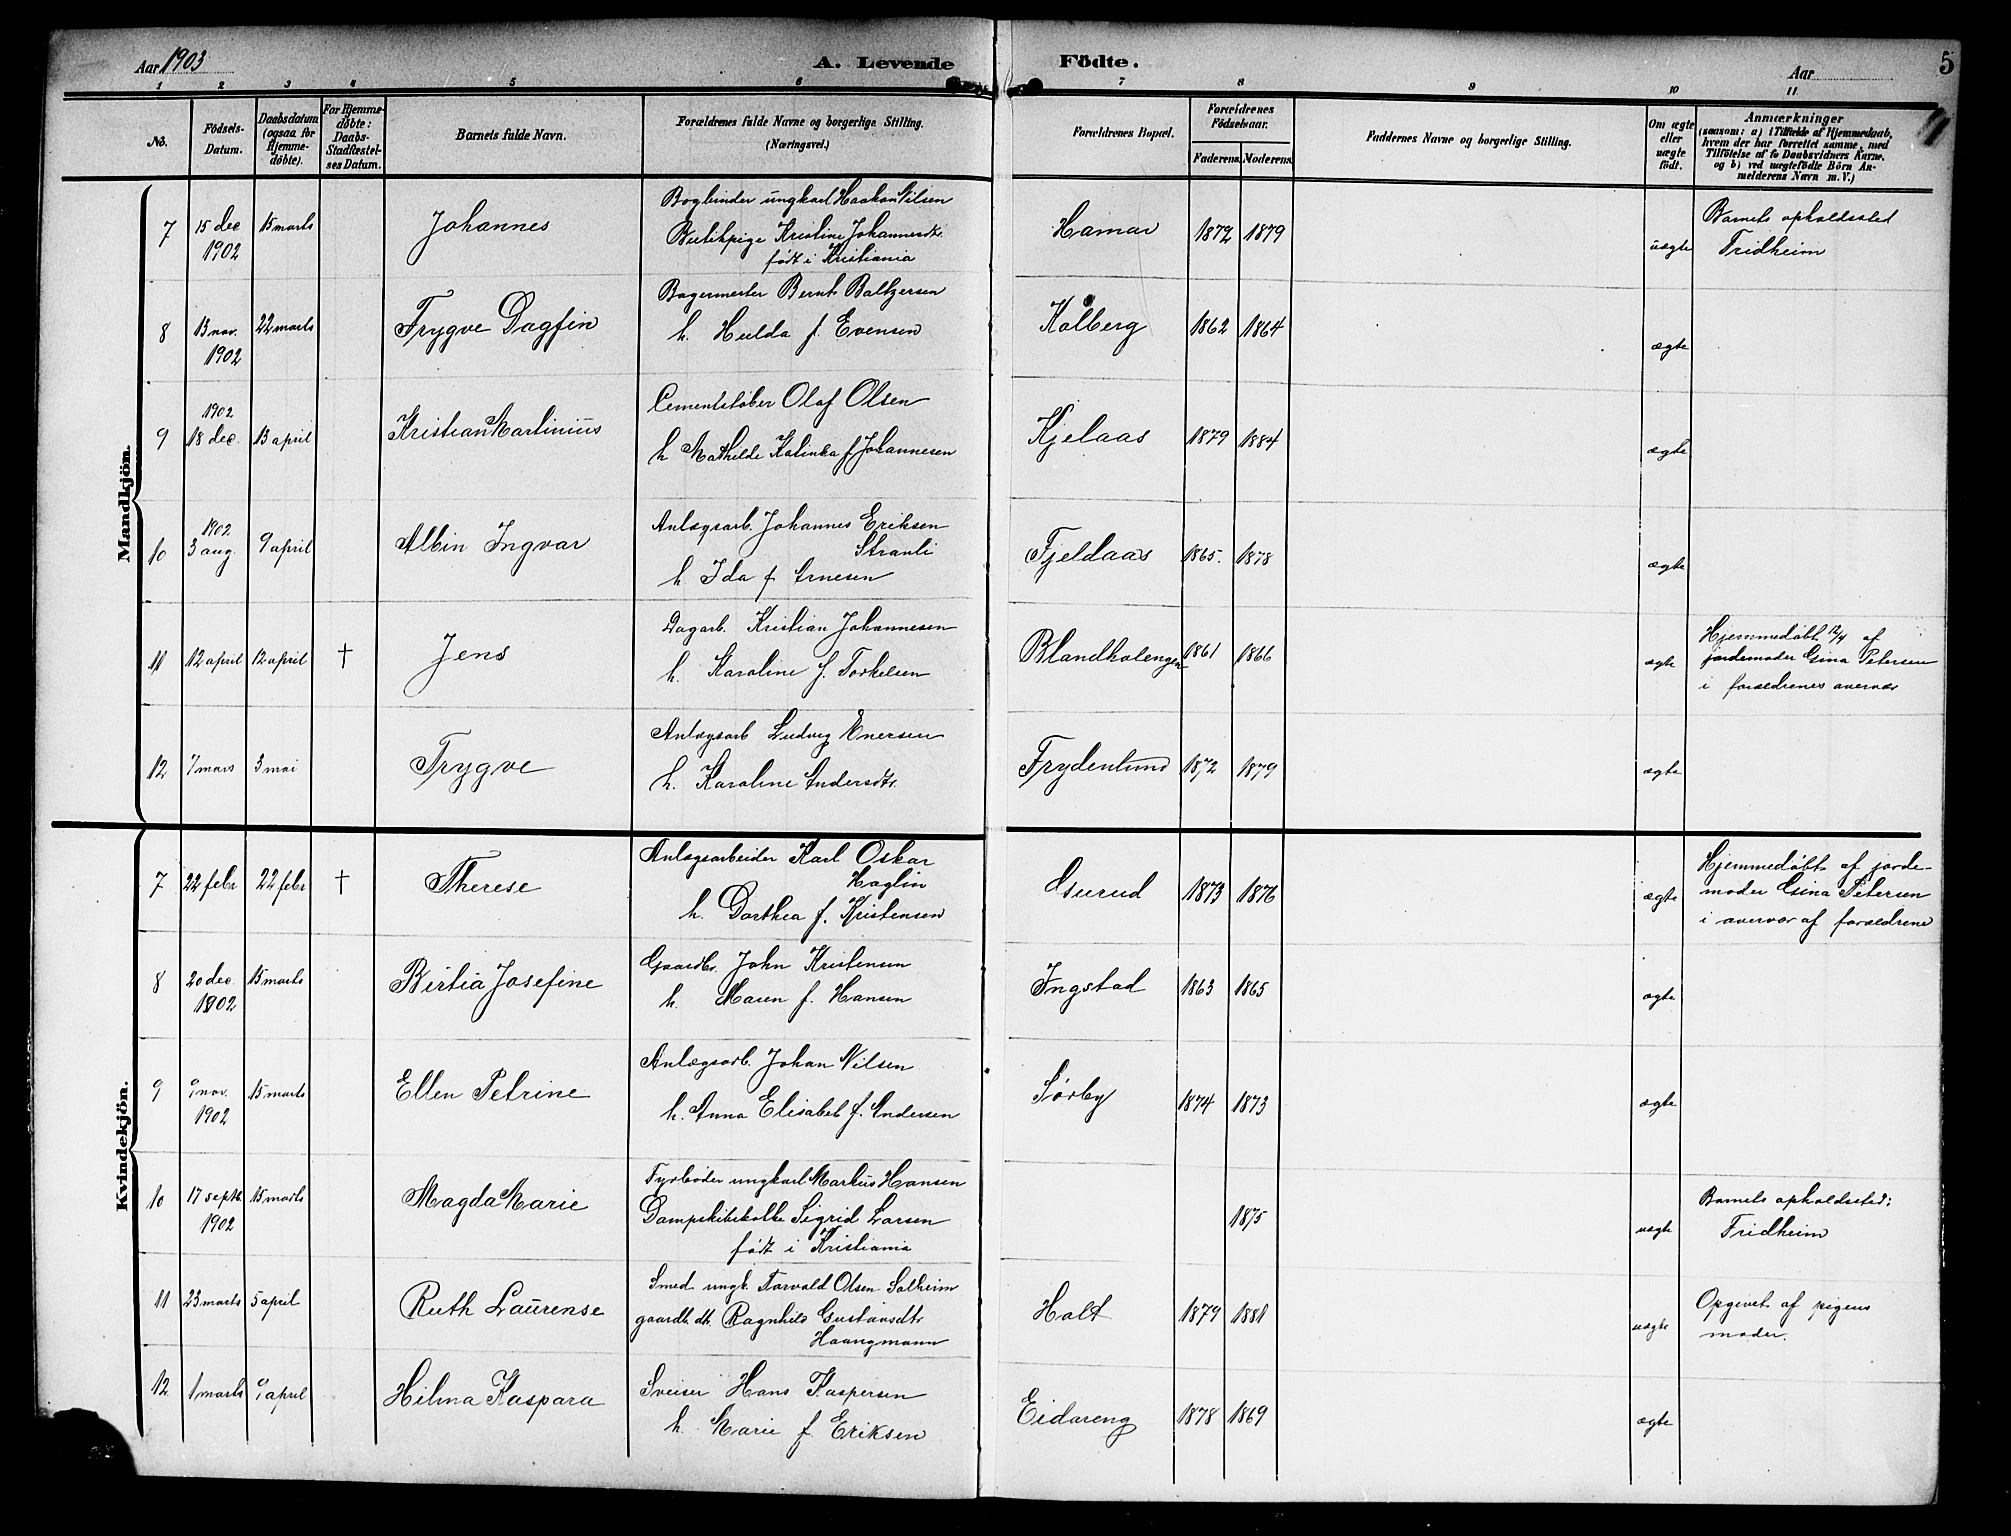 Aar 1903
A. Levende Födte.
Aar
5
1 2 3 4 5 6 7 8 9 10 11
No.
Födsels-Datum.
Daabsdatum (ogsaa for Hjemmedöbte).
For Hjemmedöbte: Daabs-Stadfæstelses Datum.
Barnets fulde Navn.
Forældrenes fulde Navne og borgerlige Stilling. (Næringsvei.)
Forældrenes Bopæl.
Forældrenes Födselsaar.
Faderens. Moderens.
Faddernes Navne og borgerlige Stilling.
Om ægte eller uægte födt.
Anmærkninger
(saasom: a) i Tilfælde af Hjemmedaab, hvem der har forrettet samme, med Tilföielse af to Daabsvidners Navne, og b) ved uægtefödte Börn Anmelderens Navn m. V.)
Mandkjön.
7 15 dec 1902 15 marts Johannes
Bogbinder ungkarl Haakon Nilsen
Butikpige Kristine Johannesdtr.
født i Kristiania
Hamar 1872 1879 uægte
Barnets opholdssted
Fridheim
8 13 nov. 1902 22 marts Trygve Dagfin
Bagermester Bernt Baltzersen
h. Hulda f. Evensen
Kolberg 1862 1864 ægte
9 1902 18 dec. 13 april Kristian Martinius
Cementstøber Olaf Olsen
h Mathilde Kalinka f Johannesen
Kjelaas 1879 1884 ægte
10 1902 3 aug. 9 april Albin Ingvar
Anlægsarb. Johannes Eriksen
Stranli
h Ida f Arnesen
Fjeldaas 1865. 1878 ægte
11 12 april 12 april † Jens
Dagarb. Kristian Johannesen
h. Karoline f. Torkelsen
Blandkolengen 1861 1866 ægte
Hjemmedøbt 12/4 af
jordemoder Gina Petersen
i forældrenes overvær
12 7 mars 3 mai Trygve
Anlægsarb Ludvig Enersen
h. Karoline Andersdtr.
Frydenlund 1872 1879 ægte
Kvindekjön.
7 22 febr 22 febr † Therese
Anlægsarbeider Karl Oskar
Haglin
h. Dorthea f. Kristensen
Gurud 1873 1876 ægte
Hjemmedøbt af jorde-
moder Gina Petersen
i overvær af forældrene
8 20 dec. 1902 15 marts Birtia Josefine
Gaardbr. John Kristensen
h. Maren f. Hansen
Ingstad 1863 1865 ægte
9 9 nov. 1902 15 marts Ellen Petrine
Anlægsarb. Johan Nilsen
h. Anna Elisabet f. Andersen
Sørby 1874 1873 ægte
10 17 septb. 1902 15 marts Magda Marie
Fyrbøder ungkarl Markus Hansen
Dampskibskokke Sigrid Larsen
født i Kristiania
1875 uægte
Barnets opholdssted:
Fridheim
11 23 marts 5 april Ruth Laurense
Smed ungk. Torvald Olsen Solheim
gaardb. dt. Ragnhild Gustavsdtr
Haangmann
Holt 1879 1881 uægte
Opgivet af pigens
moder.
12 1 marts 9 april Hilma Kaspara
Sveiser Hans Kaspersen
h. Marie f Eriksen
Eidareng 1878 1869 ægte